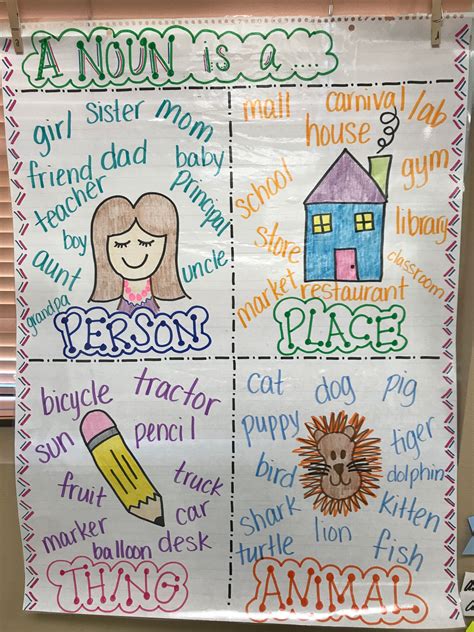 A NOUN is a ....
girl
Sister
mom
friend
dad
baby
teacher
principal
boy
aunt
uncle
grandpa
PERSON
mall
carnival
lab
house
gym
school
library
store
classroom
market
restaurant
PLACE
bicycle
tractor
sun
pencil
fruit
truck
car
marker
balloon
desk
THING
cat
dog
pig
puppy
tiger
bird
dolphin
shark
kitten
lion
turtle
fish
ANIMAL